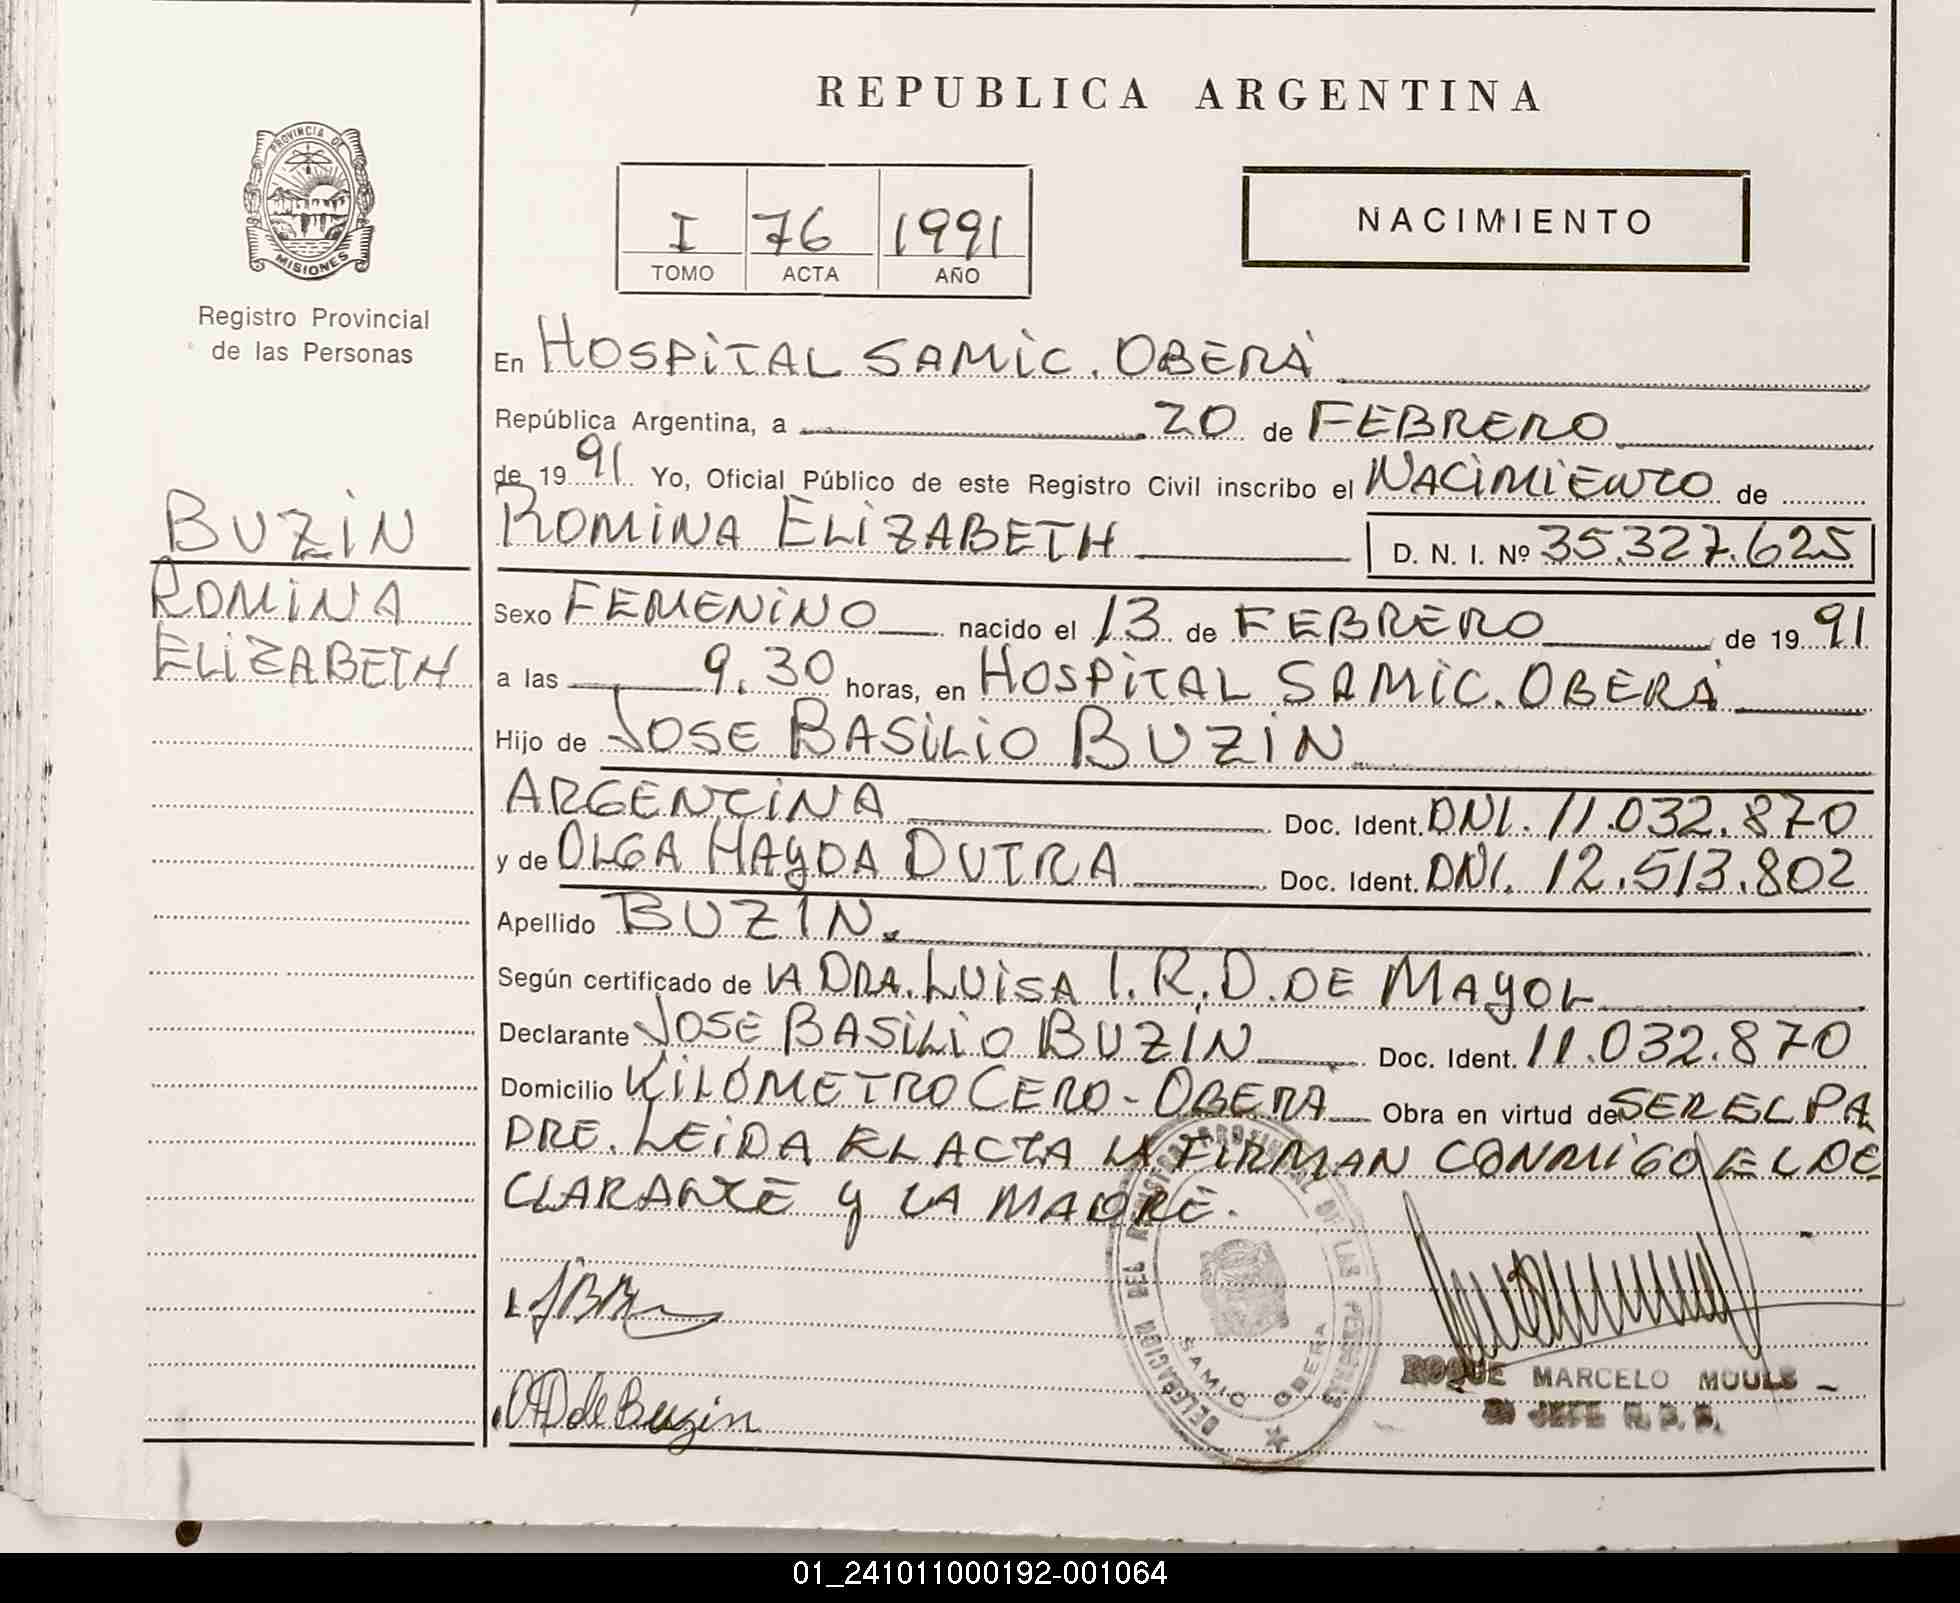 REPUBLICA ARGENTINA
PROVINCIA DE
MISIONES
Registro Provincial
de las Personas
I 76 1991
TOMO ACTA AÑO
NACIMIENTO
BUZIN
ROMINA
ELIZABETH
En HOSPITAL SAMIC. OBERÁ
República Argentina, a 20 de FEBRERO
de 1991 Yo, Oficial Público de este Registro Civil inscribo el NACIMIENTO de
ROMINA ELIZABETH D. N. I. Nº 35.327.625
Sexo FEMENINO nacido el 13 de FEBRERO de 1991
a las 9.30 horas, en HOSPITAL SAMIC. OBERÁ
Hijo de JOSE BASILIO BUZIN
ARGENTINA Doc. Ident. DNI. 11.032.870
y de OLGA HAYDA DUTRA Doc. Ident. DNI. 12.513.802
Apellido BUZIN.
Según certificado de LA DRA. LUISA I. R. D. DE MAYOL
Declarante JOSE BASILIO BUZIN Doc. Ident. 11.032.870
Domicilio KILÓMETRO CERO - OBERA Obra en virtud de SER EL PA
DRE. LEIDA EL ACTA LA FIRMAN CONMIGO EL DE
CLARANTE y LA MADRE.
DELEGACION DEL REGISTRO PROVINCIAL DE LAS PERSONAS
SAMIC OBERA
ODdeBuzin
ROQUE MARCELO MOULS
JEFE R. P. P.
01_241011000192-001064